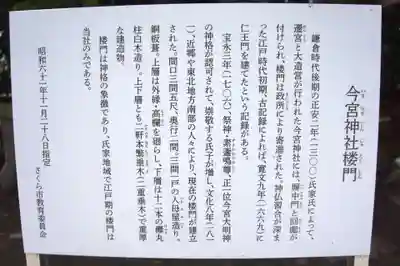 今宮神社楼門
鎌倉時代後期の正安二年(一三〇〇)氏家氏によって、
遷宮と大造営が行われた今宮神社には、屏中門と回廊が
付けられ、楼門は政所により寄進された。神仏習合が深ま
った江戸時代初期、古記録によれば、寛文九年(一六六九)に
仁王門を建てたという記録がある。
宝永三年(一七〇六)、祭神・素盞嗚尊、正一位今宮大明神
の神格が認可されて崇敬する氏子が増し、文化八年(一八一
一)、近郷や東北地方南部の人々により、現在の楼門が建立
された。間口三間五尺、奥行二間、三間一戸の入母屋造り。
銅板葺。上層は外縁・高欄を廻らし、下層は十二本の欅丸
柱白木造り。上下層とも二軒本繁垂木(二重垂木)で重厚
な建造物。
楼門は神格の象徴であり、氏家地域で江戸期の楼門は
当社のみである。
昭和六十二年十一月二十八日指定
さくら市教育委員会